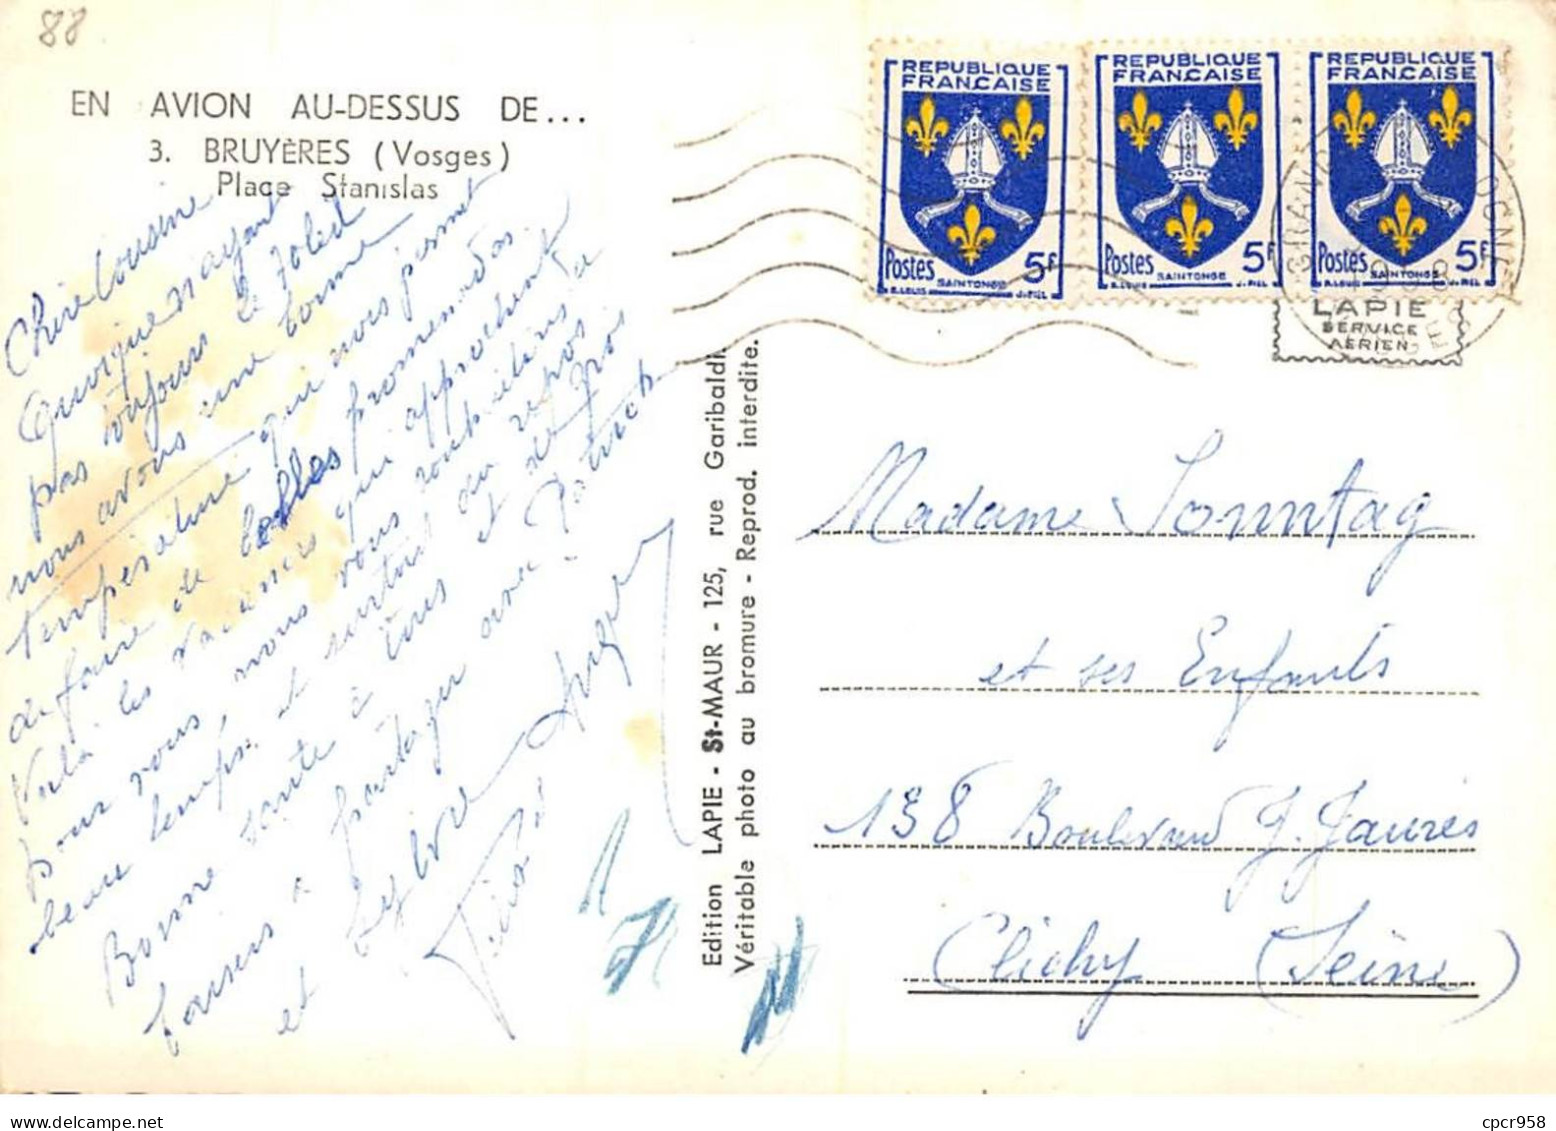 88
EN AVION AU-DESSUS DE...
3. BRUYÈRES (Vosges)
Place Stanislas
REPUBLIQUE FRANÇAISE
Postes 5F
SAINTONGE
REPUBLIQUE FRANÇAISE
Postes 5F
SAINTONGE
REPUBLIQUE FRANÇAISE
Postes 5F
SAINTONGE
LAPIE
SERVICE
AERIEN
Chère Cousine
Quoique n'ayant
pas toujours le soleil
nous avons une bonne
température qui nous permet
de faire de belles promenades.
Voilà les vacances qui approchent
pour vous nous vous souhaitons du
beau temps et surtout du repos
Bonne santé à tous et de gros
baisers à partager avec Patrick
et
Edition LAPIE - St-MAUR - 125, rue Garibaldi.
Véritable photo au bromure - Reprod. interdite.
Madame Sonntag
et ses Enfants
138 Boulevard J. Jaurès
Clichy (Seine)
cpcr958